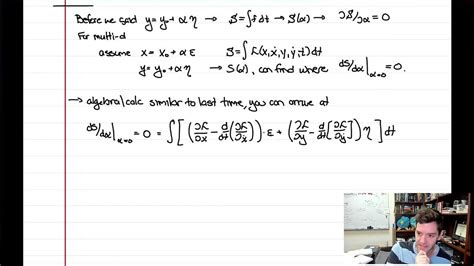 Before we said y = y₀ + αη → S = ∫f dt → S(α) → ∂S/∂α = 0
For multi-d
assume x = x₀ + α ε S = ∫ L(x, ẋ, y, ẏ; t) dt
y = y₀ + α η → S(α), can find where dS/dα|α=0 = 0.
→ algebra/calc similar to last time, you can arrive at
dS/dα|α=0 = 0 = ∫[(∂L/∂x - d/dt(∂L/∂ẋ))·ε + (∂L/∂y - d/dt[∂L/∂ẏ])η] dt